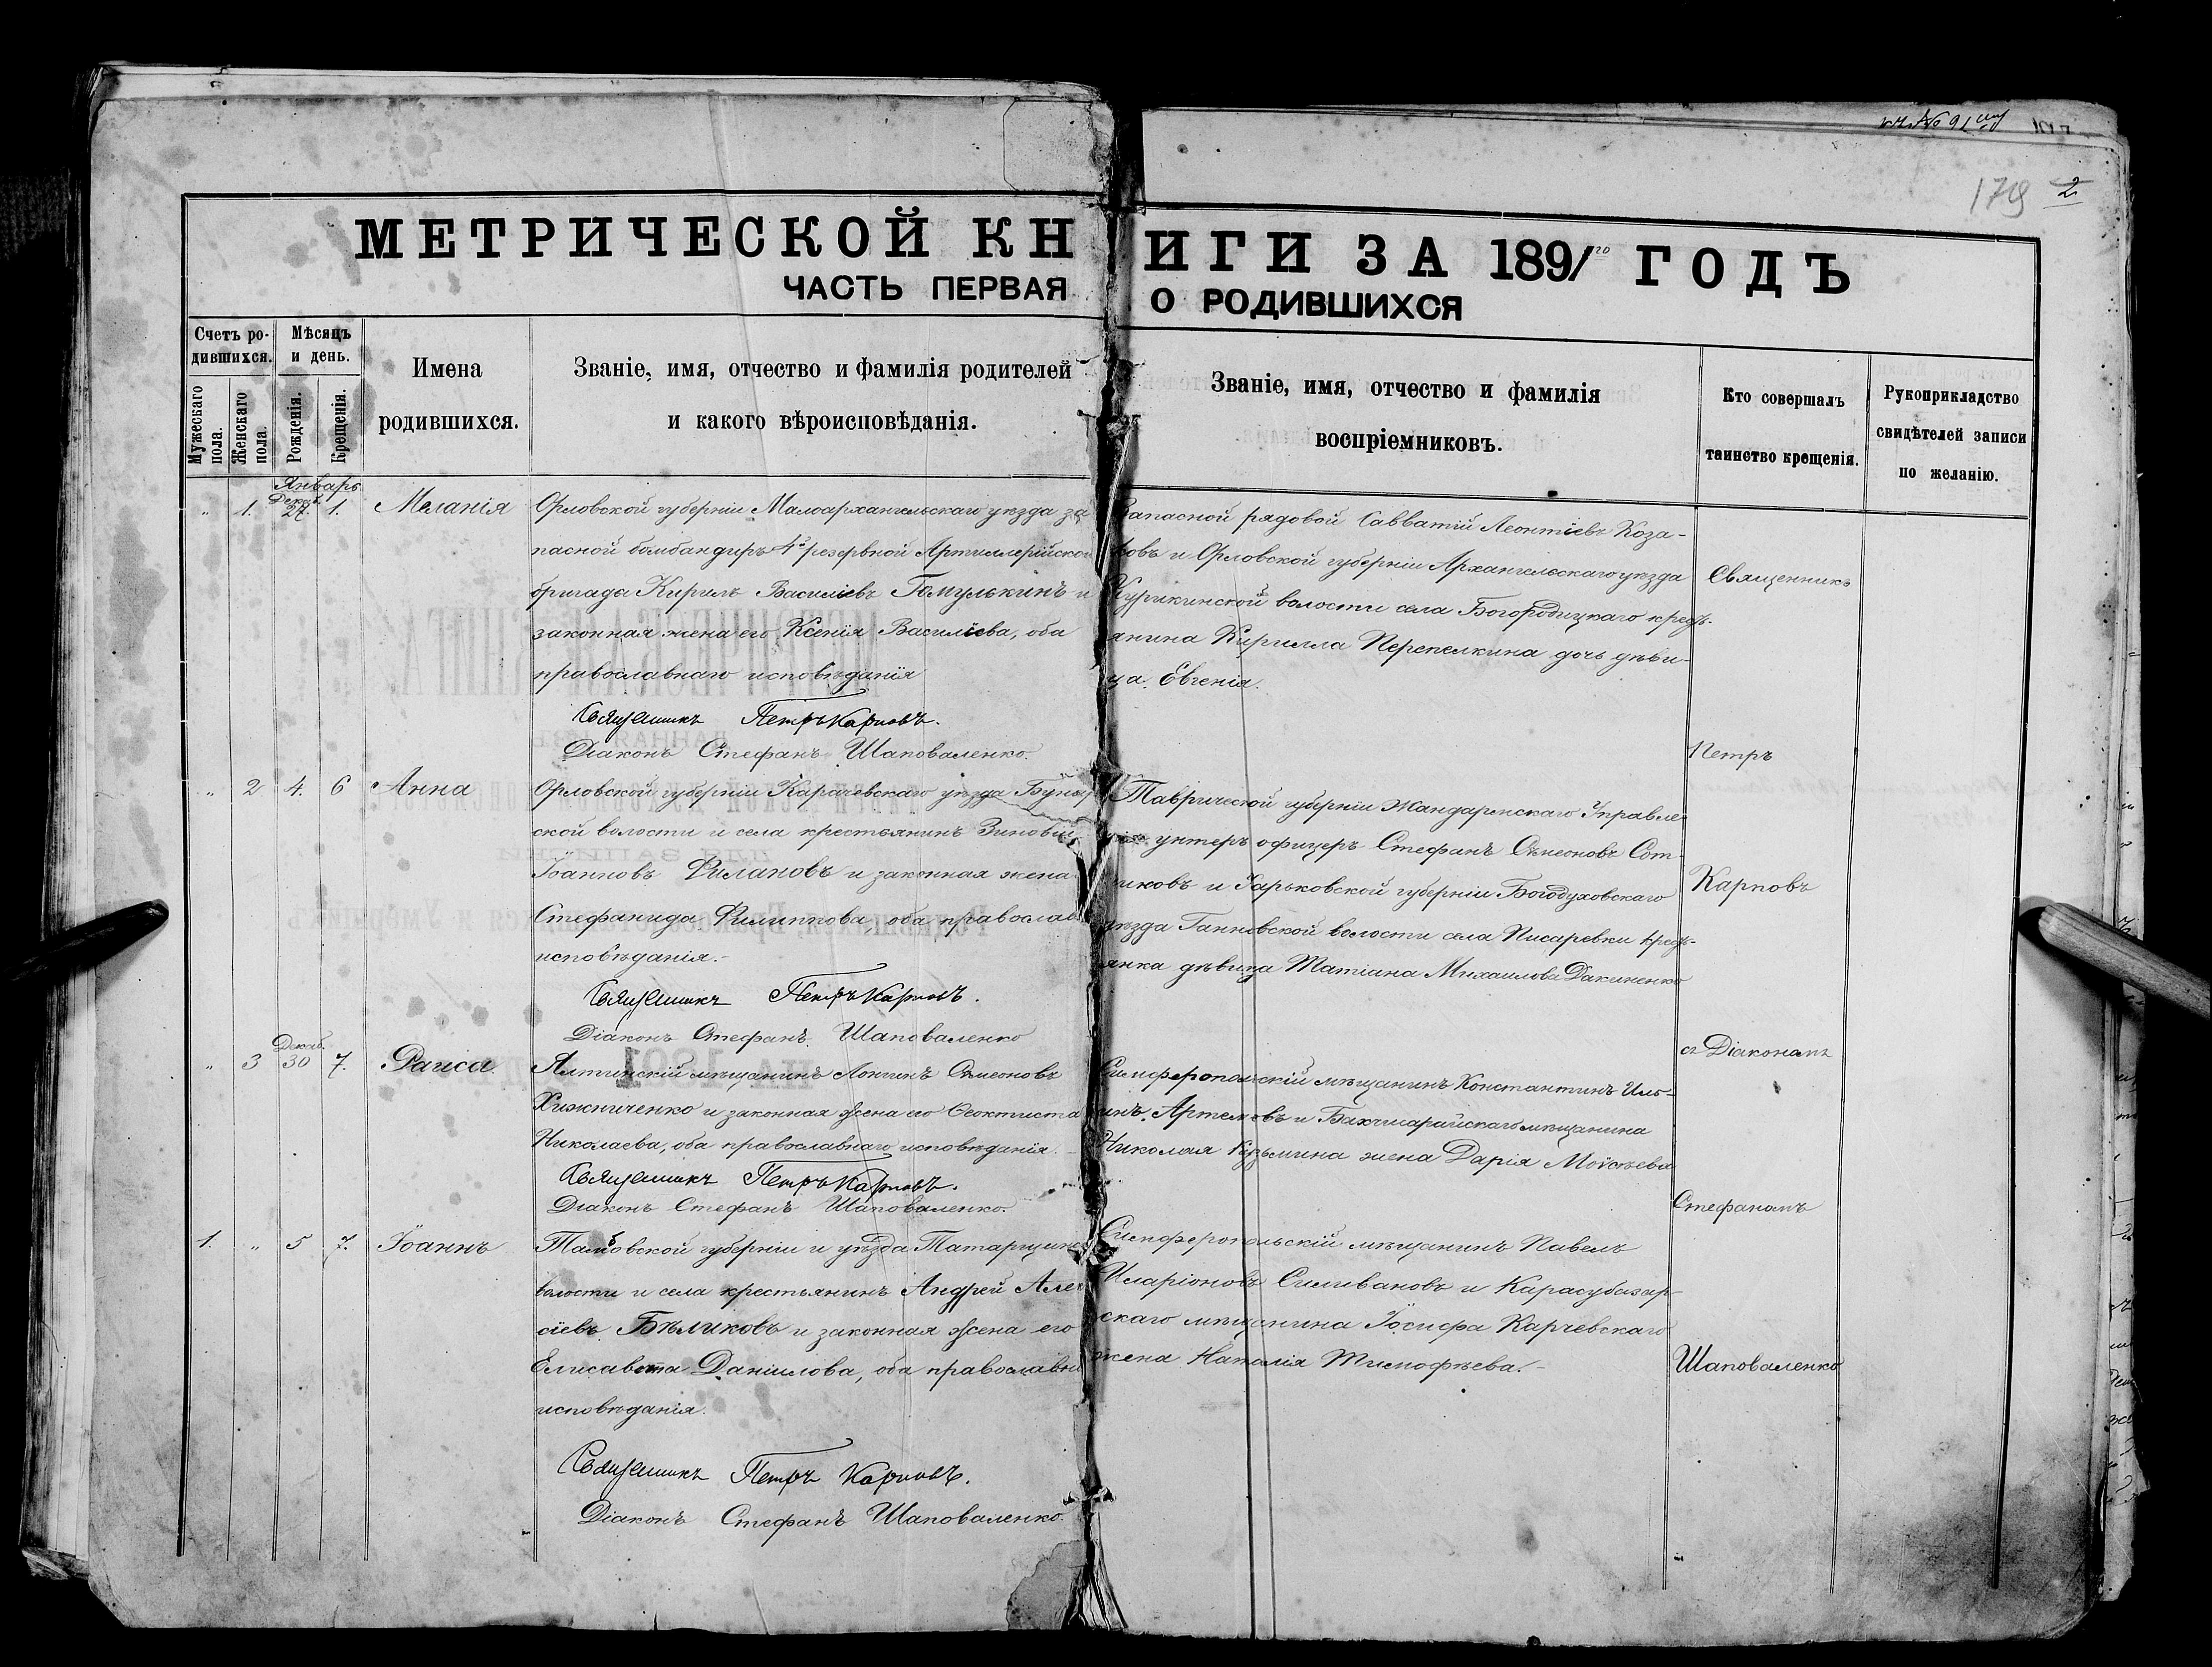 179 2
МЕТРИЧЕСКОЙ КНИГИ ЗА 1891го ГОДЪ
ЧАСТЬ ПЕРВАЯ О РОДИВШИХСЯ
Счетъ ро-
дившихся.
Мужескаго пола.
Женскаго пола.
Мѣсяцъ
и день.
Рожденія.
Крещенія.
Имена
родившихся.
Званіе, имя, отчество и фамилія родителей
и какого вѣроисповѣданія.
Званіе, имя, отчество и фамилія
воспріемниковъ.
Кто совершалъ
таинство крещенія.
Рукоприкладство
свидѣтелей записи
по желанію.
Январь
Декаб.
„ 1. 27. 1. Меланія
Орловской губерніи Малоархангельскаго уѣзда за-
пасной бомбандиръ 4й резервной Артиллерійской
бригада Кирилъ Василіевъ Гомулькинъ и
законная жена его Ксенія Василіева, оба
православнаго исповѣданія
Священникъ Петръ Карповъ.
Діаконъ Стефанъ Шаповаленко.
Запасной рядовой Савватій Леонтіевъ Коза-
ковъ и Орловской губерніи Архангельскаго уѣзда
Курикинской волости села Богородицкаго крест-
янина Кирилла Перепелкина дочь дѣви-
ца Евгенія.
Священникъ
Петръ
Карповъ
съ Діакономъ
Стефаномъ
Шаповаленко
„ 2 4. 6 Анна
Орловской губерніи Карачевскаго уѣзда
ской волости и села крестьянинъ Зиновій
Іоанновъ Филаповъ и законная жена
Стефанида Филиппова, оба православ
исповѣданія.-
Священникъ Петръ Карповъ.
Діаконъ Стефанъ Шаповаленко
Таврической губерніи Жандармскаго Управле
унтеръ офицеръ Стефанъ Симеоновъ Сот-
никовъ и Харьковской губерніи Богодуховскаго
уѣзда волости села Писаревки крест-
янка дѣвица Татіана Михаилова
Декаб.
„ 3 30 7. Раиса.
Ялтинскій мѣщанинъ Логинъ Симеоновъ
Хижниченко и законная жена его Ѳеоктиста
Николаева, оба православнаго исповѣданія.
Священникъ Петръ Карповъ.
Діаконъ Стефанъ Шаповаленко.
Симферопольскій мѣщанинъ Константинъ Иль-
инъ Артемовъ и Бахчисарайскаго мѣщанина
Николая Кузьмина жена Дарія Моѵсѣева
1. „ 5 7. Іоаннъ
Тамбовской губерніи и уѣзда Татарщинс
волости и села крестьянинъ Андрей Алек
сіевъ Бѣликовъ и законная жена его
Елисавета Даніилова, оба православн
исповѣданія.
Священникъ Петръ Карповъ.
Діаконъ Стефанъ Шаповаленко.
Симферопольскій мѣщанинъ Павелъ
Иларіоновъ Силивановъ и Карасубазар-
скаго мѣщанина Іосифа Карчевскаго
жена Наталія Тимофѣева.-